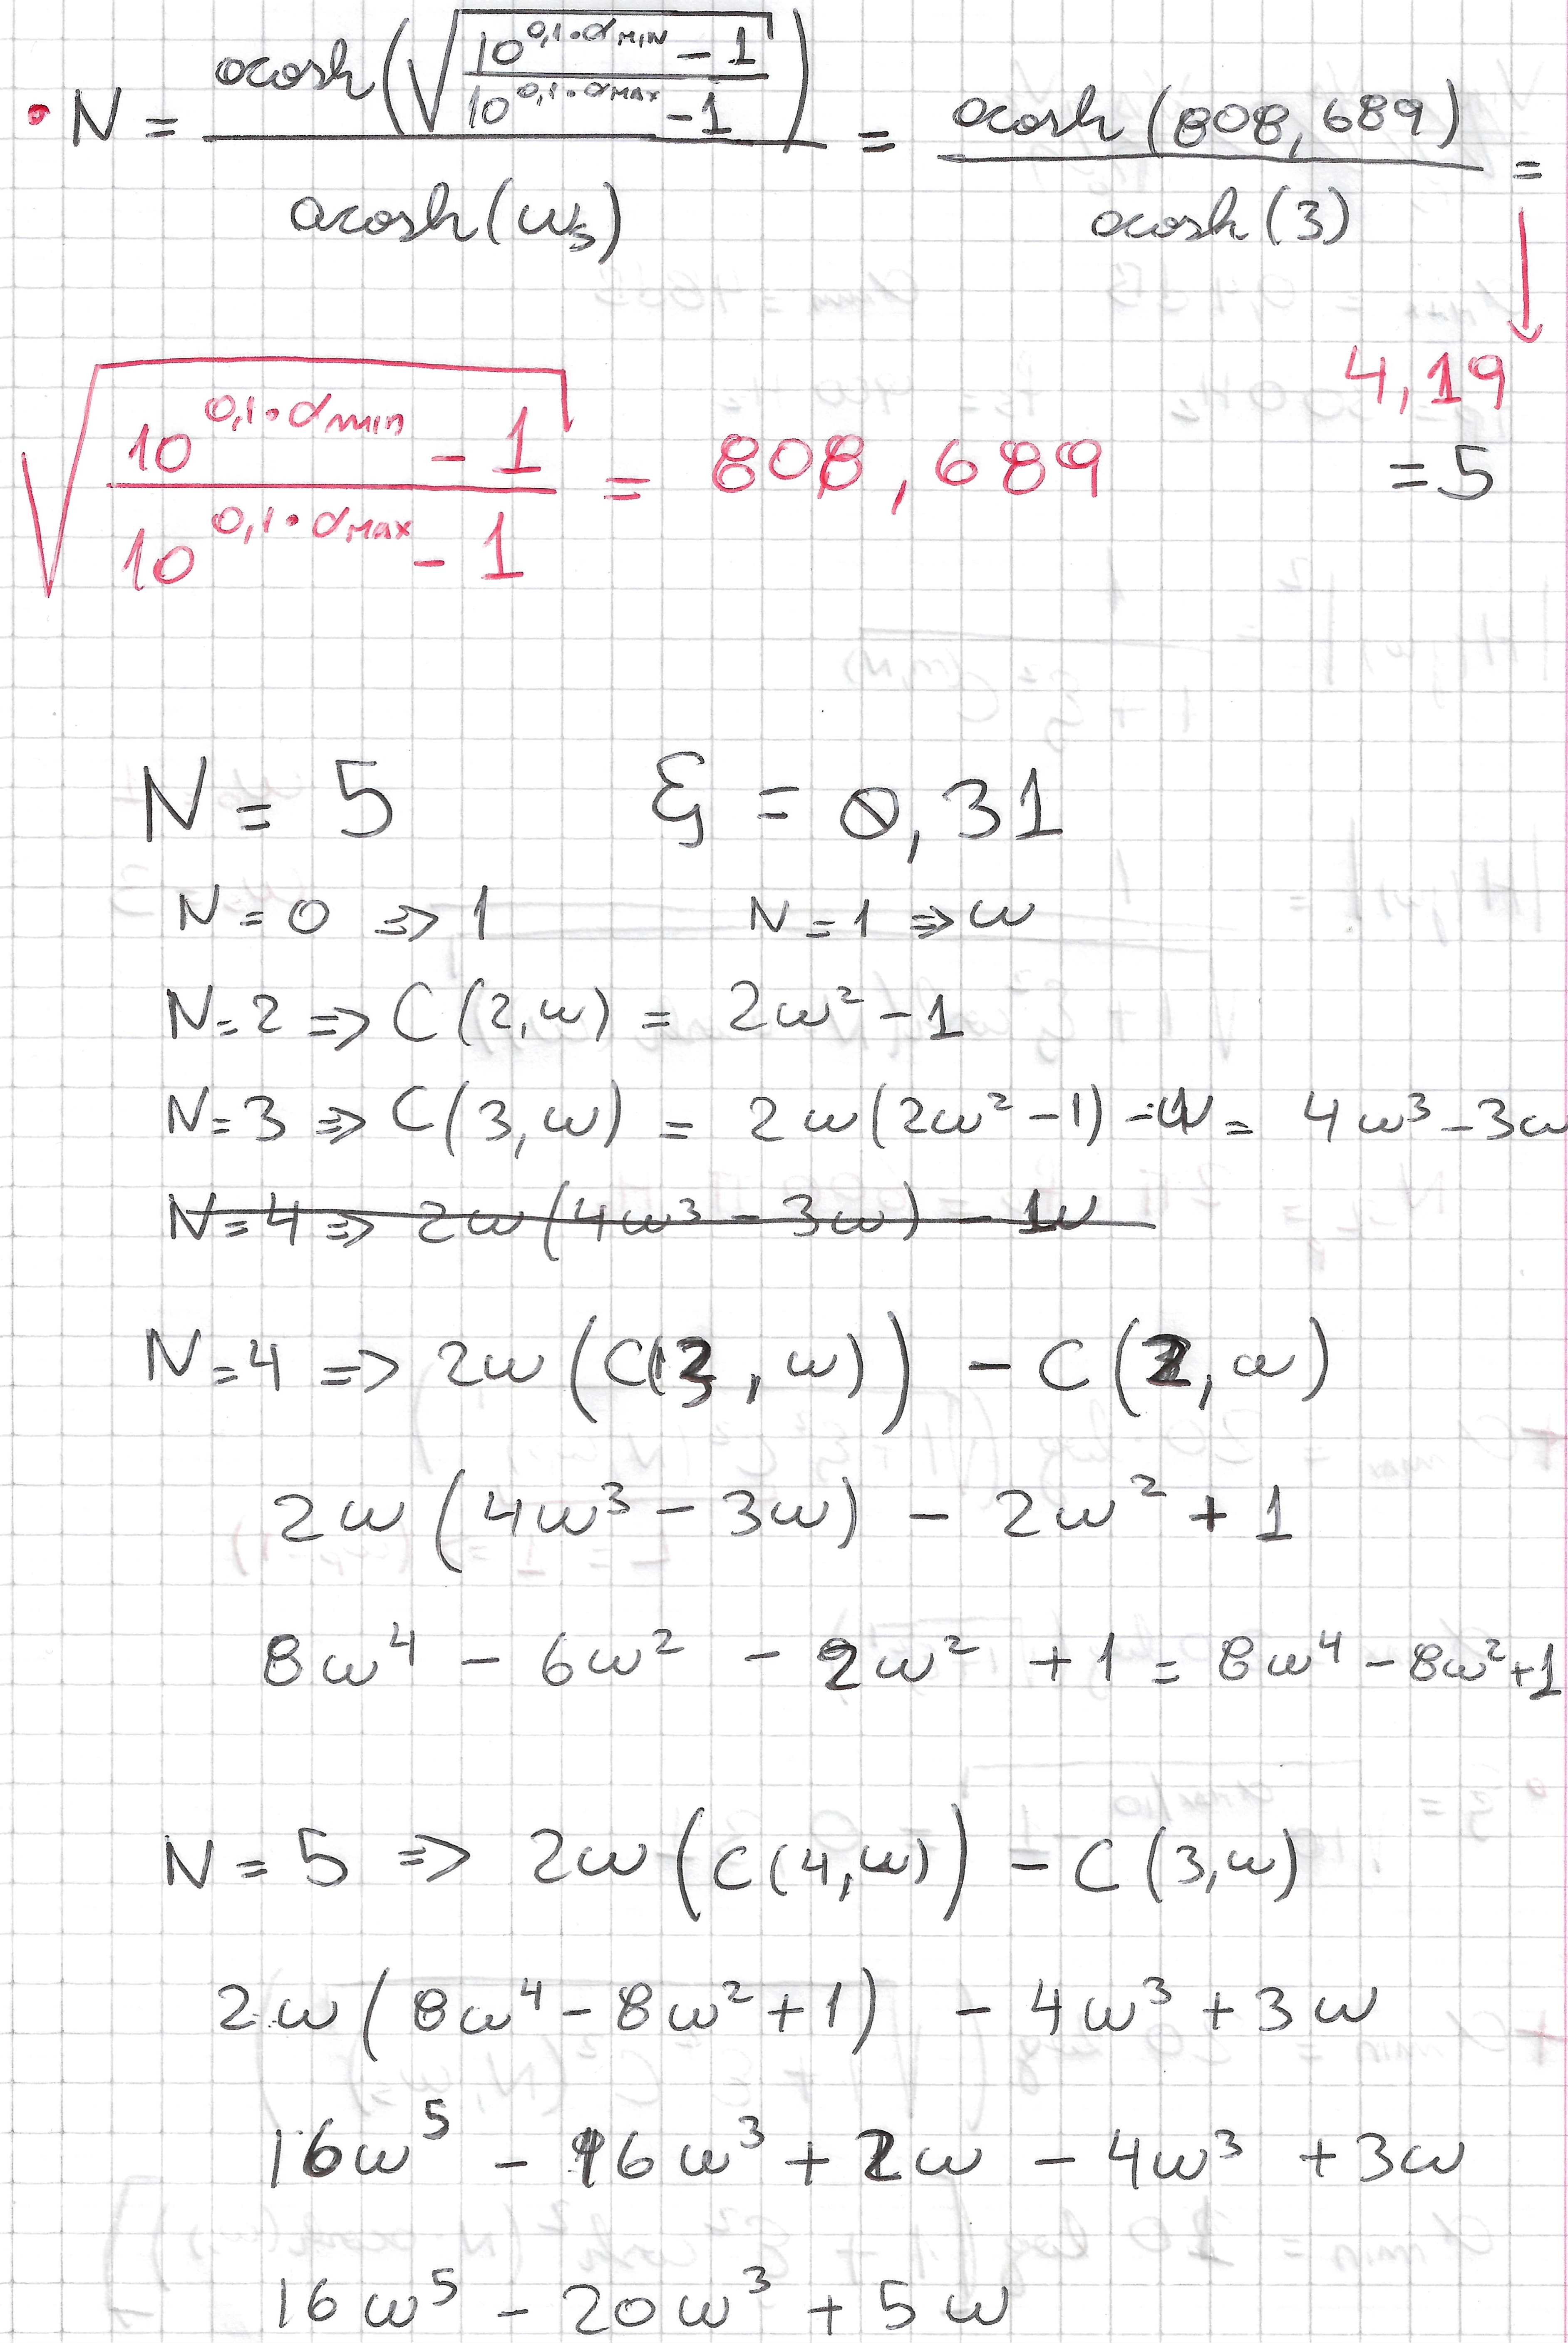 • N = acosh(√((10^(0,1·αMIN) − 1)/(10^(0,1·αMAX) − 1))) / acosh(ωs) = acosh(808,689) / acosh(3) =
4,19
√((10^(0,1·αmin) − 1)/(10^(0,1·αMAX) − 1)) = 808,689 = 5
N = 5 ξ = 0,31
N = 0 ⇒ 1 N = 1 ⇒ ω
N = 2 ⇒ C(2,ω) = 2ω² − 1
N = 3 ⇒ C(3,ω) = 2ω(2ω² − 1) − ω = 4ω³ − 3ω
N = 4 ⇒ 2ω(4ω³ − 3ω) − 1ω
N = 4 ⇒ 2ω(C(3,ω)) − C(2,ω)
2ω(4ω³ − 3ω) − 2ω² + 1
8ω⁴ − 6ω² − 2ω² + 1 = 8ω⁴ − 8ω² + 1
N = 5 ⇒ 2ω(C(4,ω)) − C(3,ω)
2ω(8ω⁴ − 8ω² + 1) − 4ω³ + 3ω
16ω⁵ − 16ω³ + 2ω − 4ω³ + 3ω
16ω⁵ − 20ω³ + 5ω